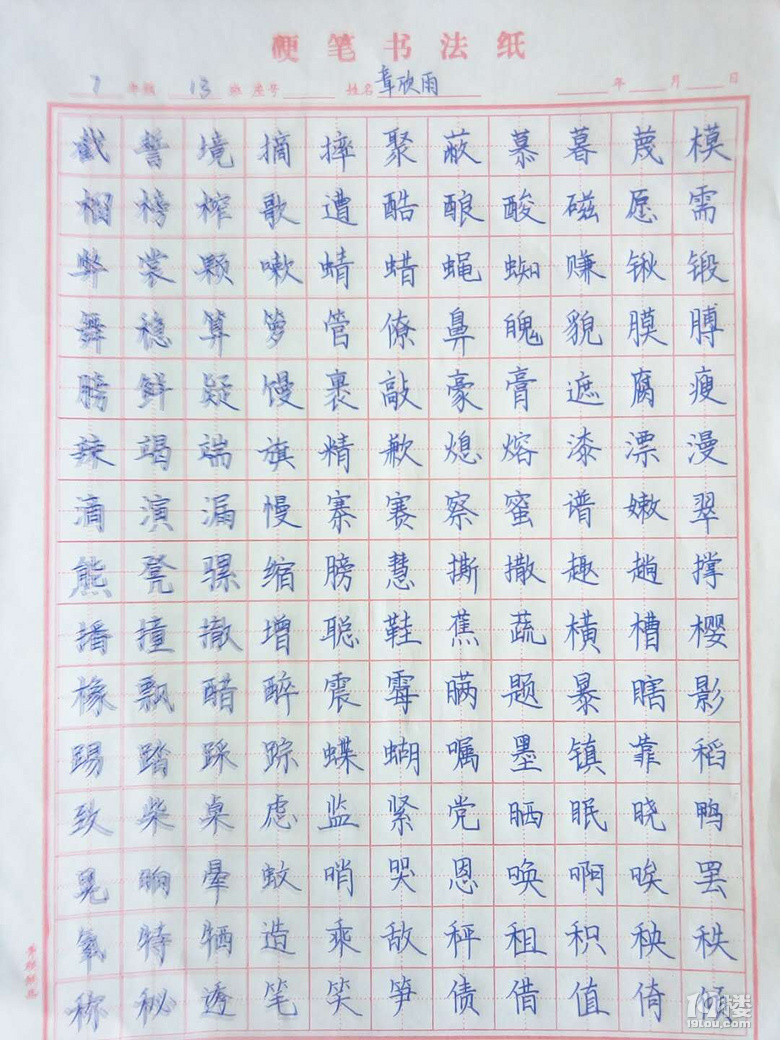 硬笔书法纸
7 年级 13 班 座号 姓名 章欣雨 年 月 日
截 誓 境 摘 摔 聚 蔽 慕 暮 蔑 模
榴 榜 榨 歌 遭 酷 酿 酸 磁 愿 需
弊 裳 颗 嗽 蜻 蜡 蝇 蜘 赚 锹 锻
舞 稳 算 箩 管 僚 鼻 魄 貌 膜 膊
膀 鲜 疑 馒 裹 敲 豪 膏 遮 腐 瘦
辣 竭 端 旗 精 歉 熄 熔 漆 漂 漫
滴 演 漏 慢 寨 赛 察 蜜 谱 嫩 翠
熊 凳 骡 缩 膀 慧 撕 撒 趣 趟 撑
播 撞 撤 增 聪 鞋 蕉 蔬 横 槽 樱
橡 飘 醋 醉 震 霉 瞒 题 暴 瞎 影
踢 踏 踩 踪 蝶 蝴 嘱 墨 镇 靠 稻
致 柴 桌 虑 监 紧 党 晒 眠 晓 鸭
晃 晌 晕 蚊 哨 哭 恩 唤 啊 唉 罢
氧 特 牺 造 乘 敌 秤 租 积 秧 秩
称 秘 透 笔 笑 笋 债 借 值 倚 倾
19楼
19lou.com